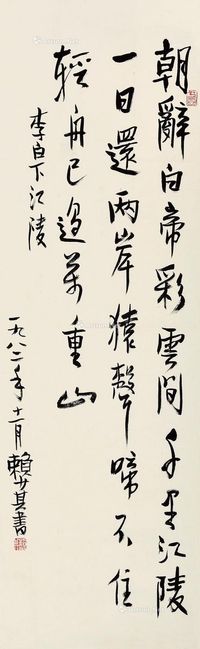 朝辭白帝彩雲間千里江陵
一日還兩岸猿聲啼不住
輕舟已過萬重山
李白下江陵
一九八二年十一月賴少其書